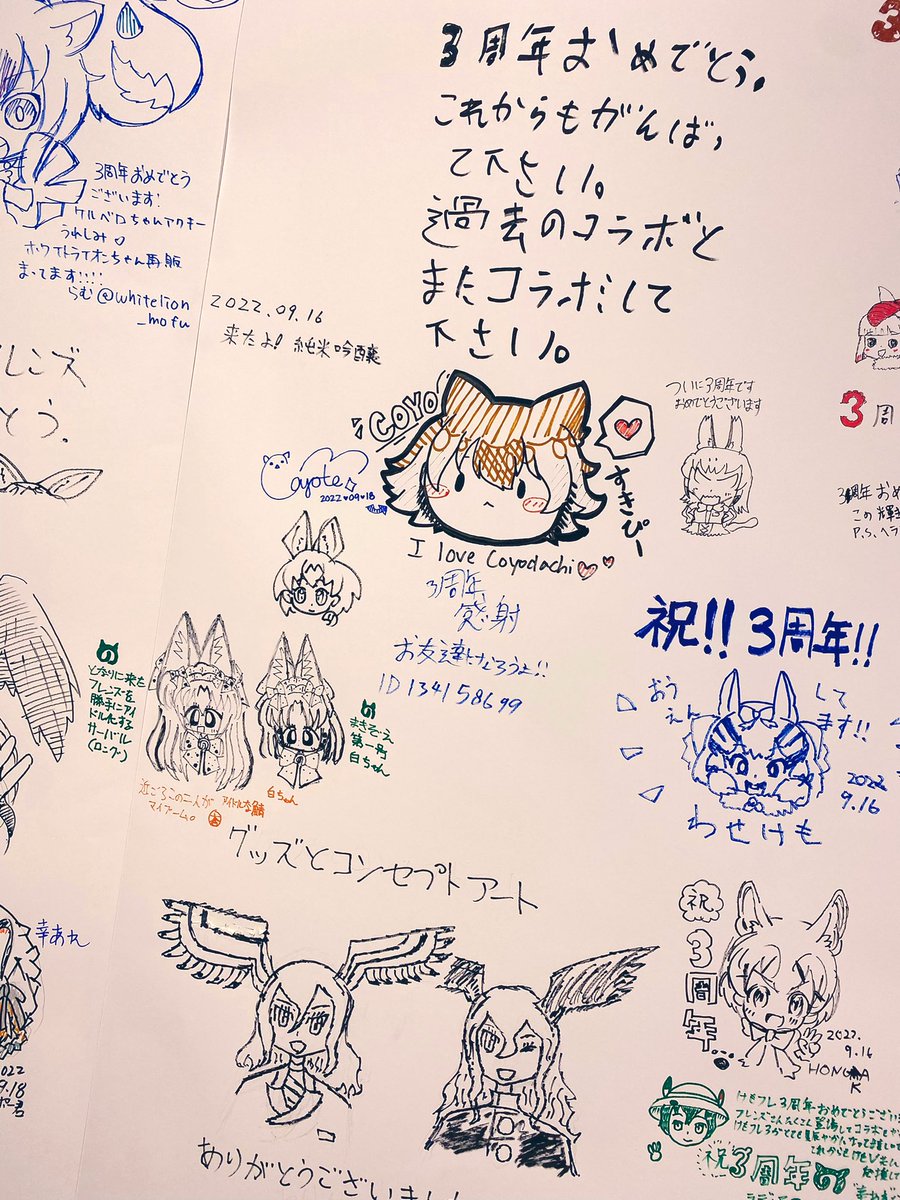 3周年おめでとう。
これからもがんばっ
て下さい。
過去のコラボと
またコラボして
下さい。
3周年おめでとう
ございます!
ケルベロちゃんアクキー
うれしみ♡
ホワイトライオンちゃん再販
まってます!!!!
らむ@whitelion
_mofu
2022.09.16
来たよ! 純米吟醸
フレンズ
とう.
COYO
すきぴー
Coyote
2022♥09♥18
I love Coyodachi♡♡
ついに3周年です
おめでとうございます
3周
3周年おめ
この輝き
P.S.ヘラ
3周年
感射
お友達になろうよ!!
ID 134158699
祝!! 3周年!!
おう
えん
して
ます!!
2022
9.16
わせけも
となりに来た
フレンズを
勝手にアイ
ドルにする
サーバル
(ロング)
まきぞえ
第一号
白ちゃん
近ごろこの二人が
マイブーム。
白ちゃん
グッズとコンセプトアート
幸あれ
2022
9.18
祝
3周年
2022.
9.16
けもフレ3周年おめでとうござい
祝3周年
ありがとうございました